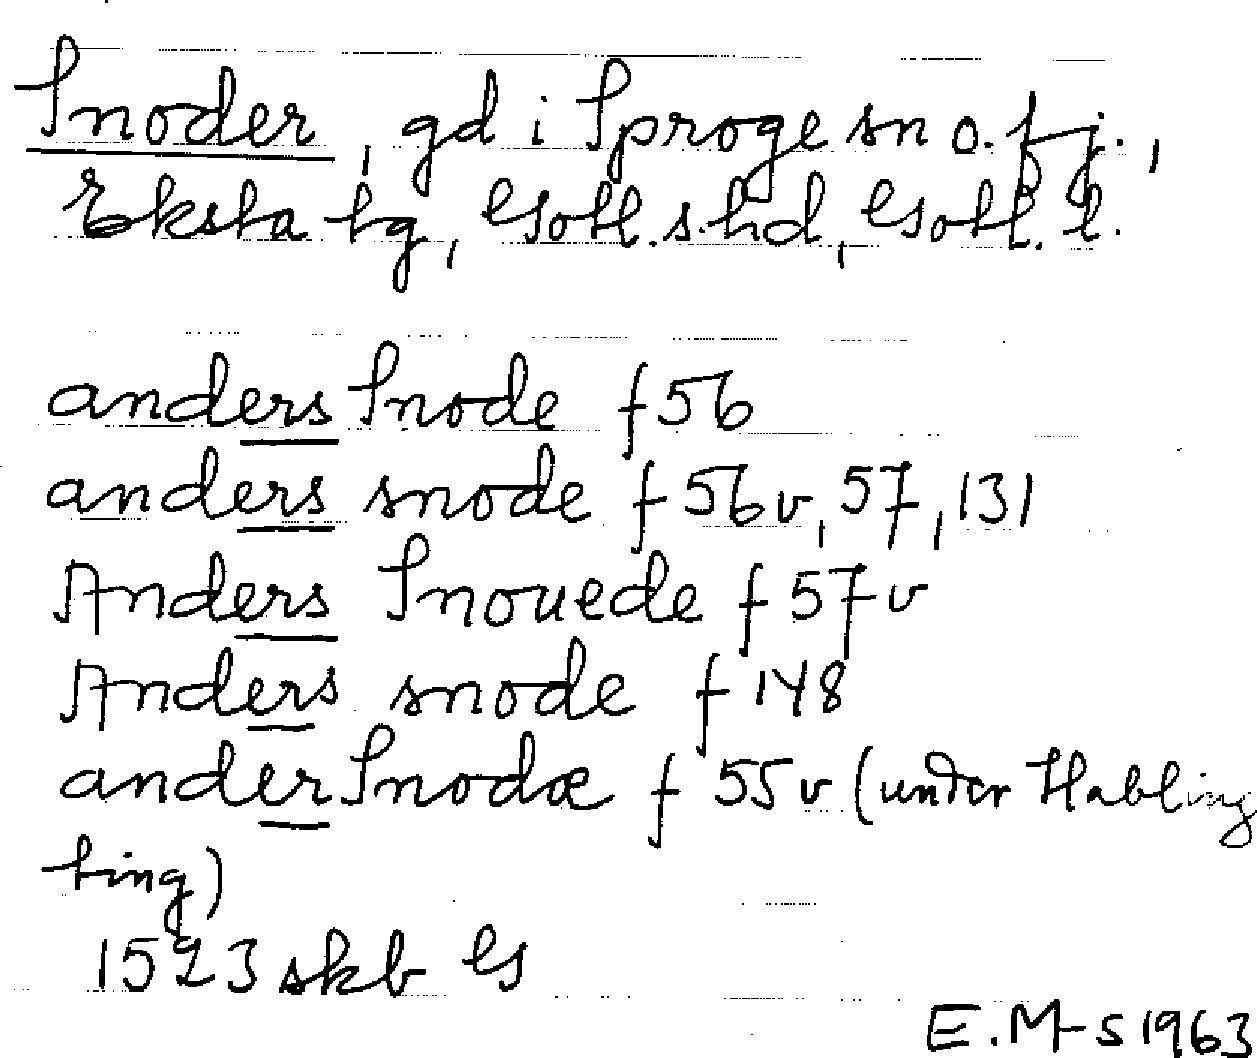 Snoder, gd i Sproge sn o. fj.,
Eksta tg, Gotl. s. hd, Gotl. l.
anders Snode f 56
anders snode f 56v, 57, 131
Anders Snouede f 57v
Anders snode f 148
ander Snodæ f 55v (under Habling
ting)
1523 skb G
E.M-S 1963